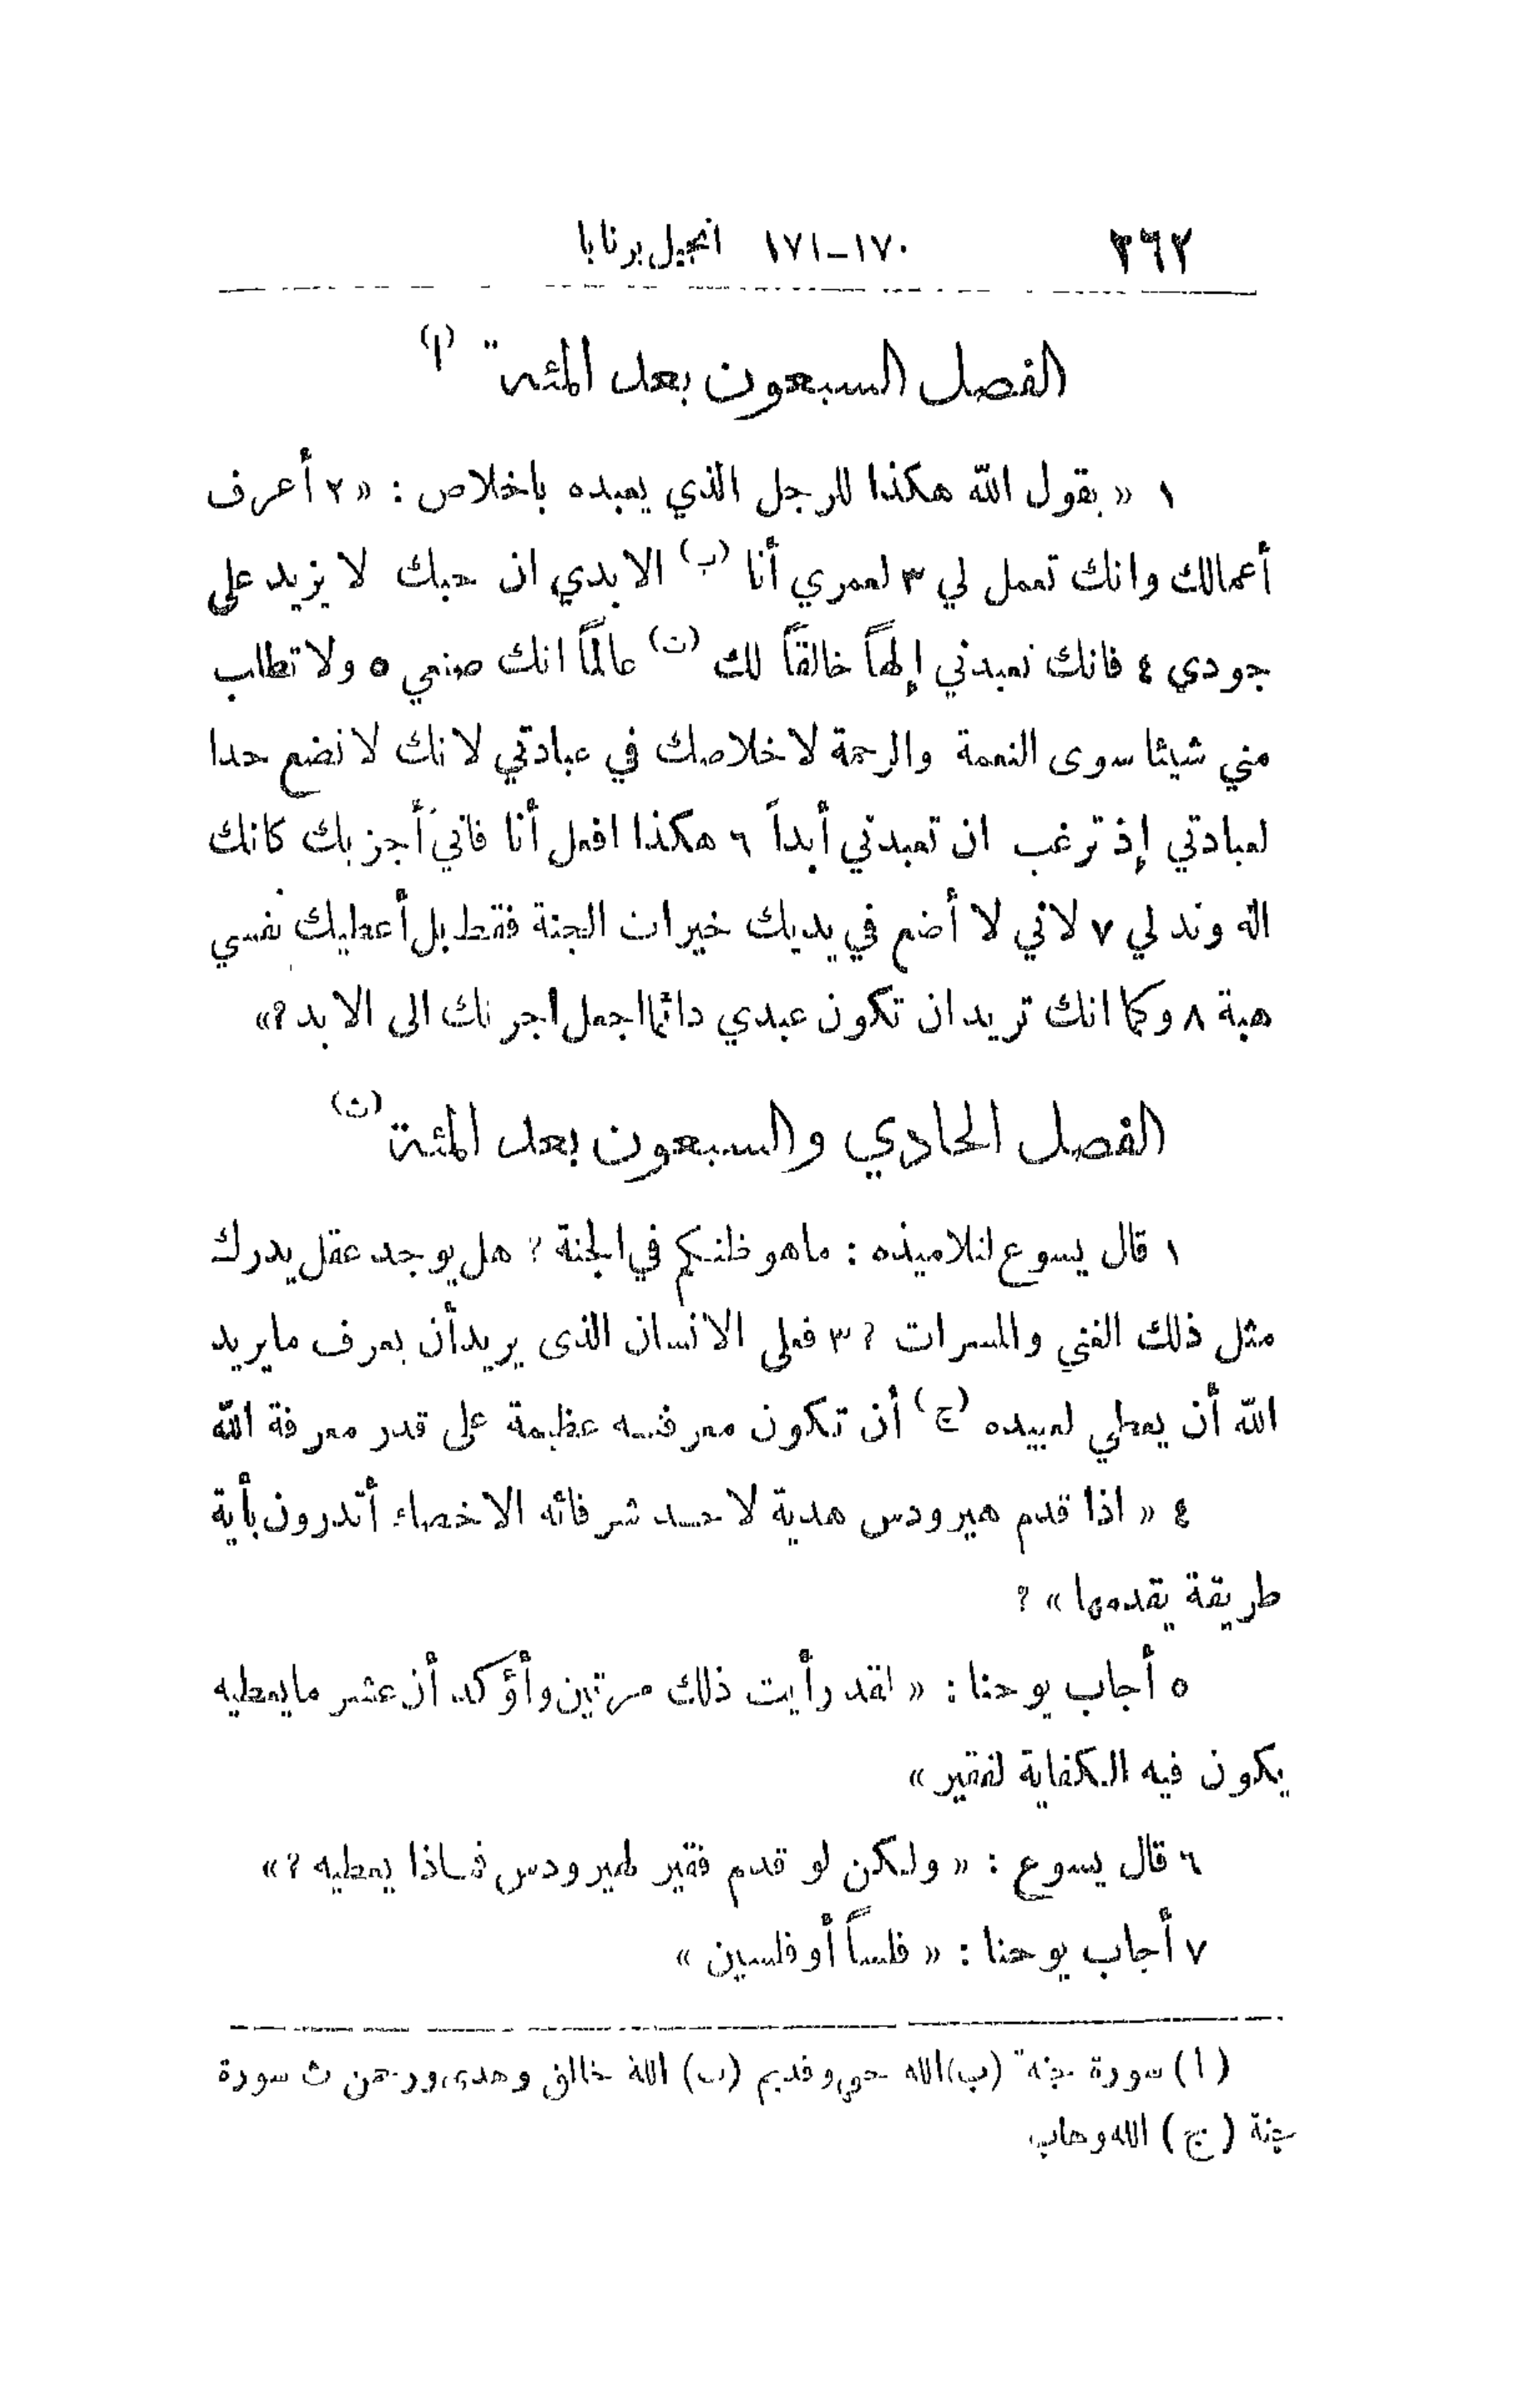 ٢٦٢ ١٧٠-١٧١ انجيل برنابا
الفصل السبعون بعد المئة (ا)
١ « يقول الله هكذا للرجل الذي يعبده باخلاص : « ٢ أعرف
أعمالك وانك تعمل لي ٣ لعمري أنا (ب) الابدي ان حبك لا يزيد على
جودي ٤ فانك تعبدني إلهاً خالقاً لك (ت) عالماً انك صنعي ٥ ولا تطلب
مني شيئا سوى النعمة والرحمة لاخلاصك في عبادتي لانك لا تضع حدا
لعبادتي إذ ترغب ان تعبدني أبداً ٦ هكذا افعل أنا فاني أجزيك كانك
اله وند لي ٧ لاني لا أضع في يديك خيرات الجنة فقط بل أعطيك نفسي
هبة ٨ وكما انك تريد ان تكون عبدي دائما اجعل أجرتك الى الابد ؟»
الفصل الحادي والسبعون بعد المئة (ث)
١ قال يسوع لتلاميذه : ماهو ظنكم في الجنة ؟ هل يوجد عقل يدرك
مثل ذلك الغنى والمسرات ؟ ٣ فعلى الانسان الذى يريد أن يعرف مايريد
الله أن يعطي لعبيده (ج) أن تكون معرفته عظيمة على قدر معرفة الله
٤ « اذا قدم هيرودس هدية لاحد شرفائه الاخصاء أتدرون بأية
طريقة يقدمها » ؟
٥ أجاب يوحنا : « لقد رأيت ذلك مرتين وأؤكد أن عشر مايعطيه
يكون فيه الكفاية لفقير »
٦ قال يسوع : « ولكن لو قدم فقير لهيرودس فماذا يعطيه ؟ »
٧ أجاب يوحنا : « فلساً أو فلسين »
(ا) سورة جنة (ب) الله حي وقديم (ت) الله خالق وهدى ورحمن ث سورة
جنة (ج) الله وهاب